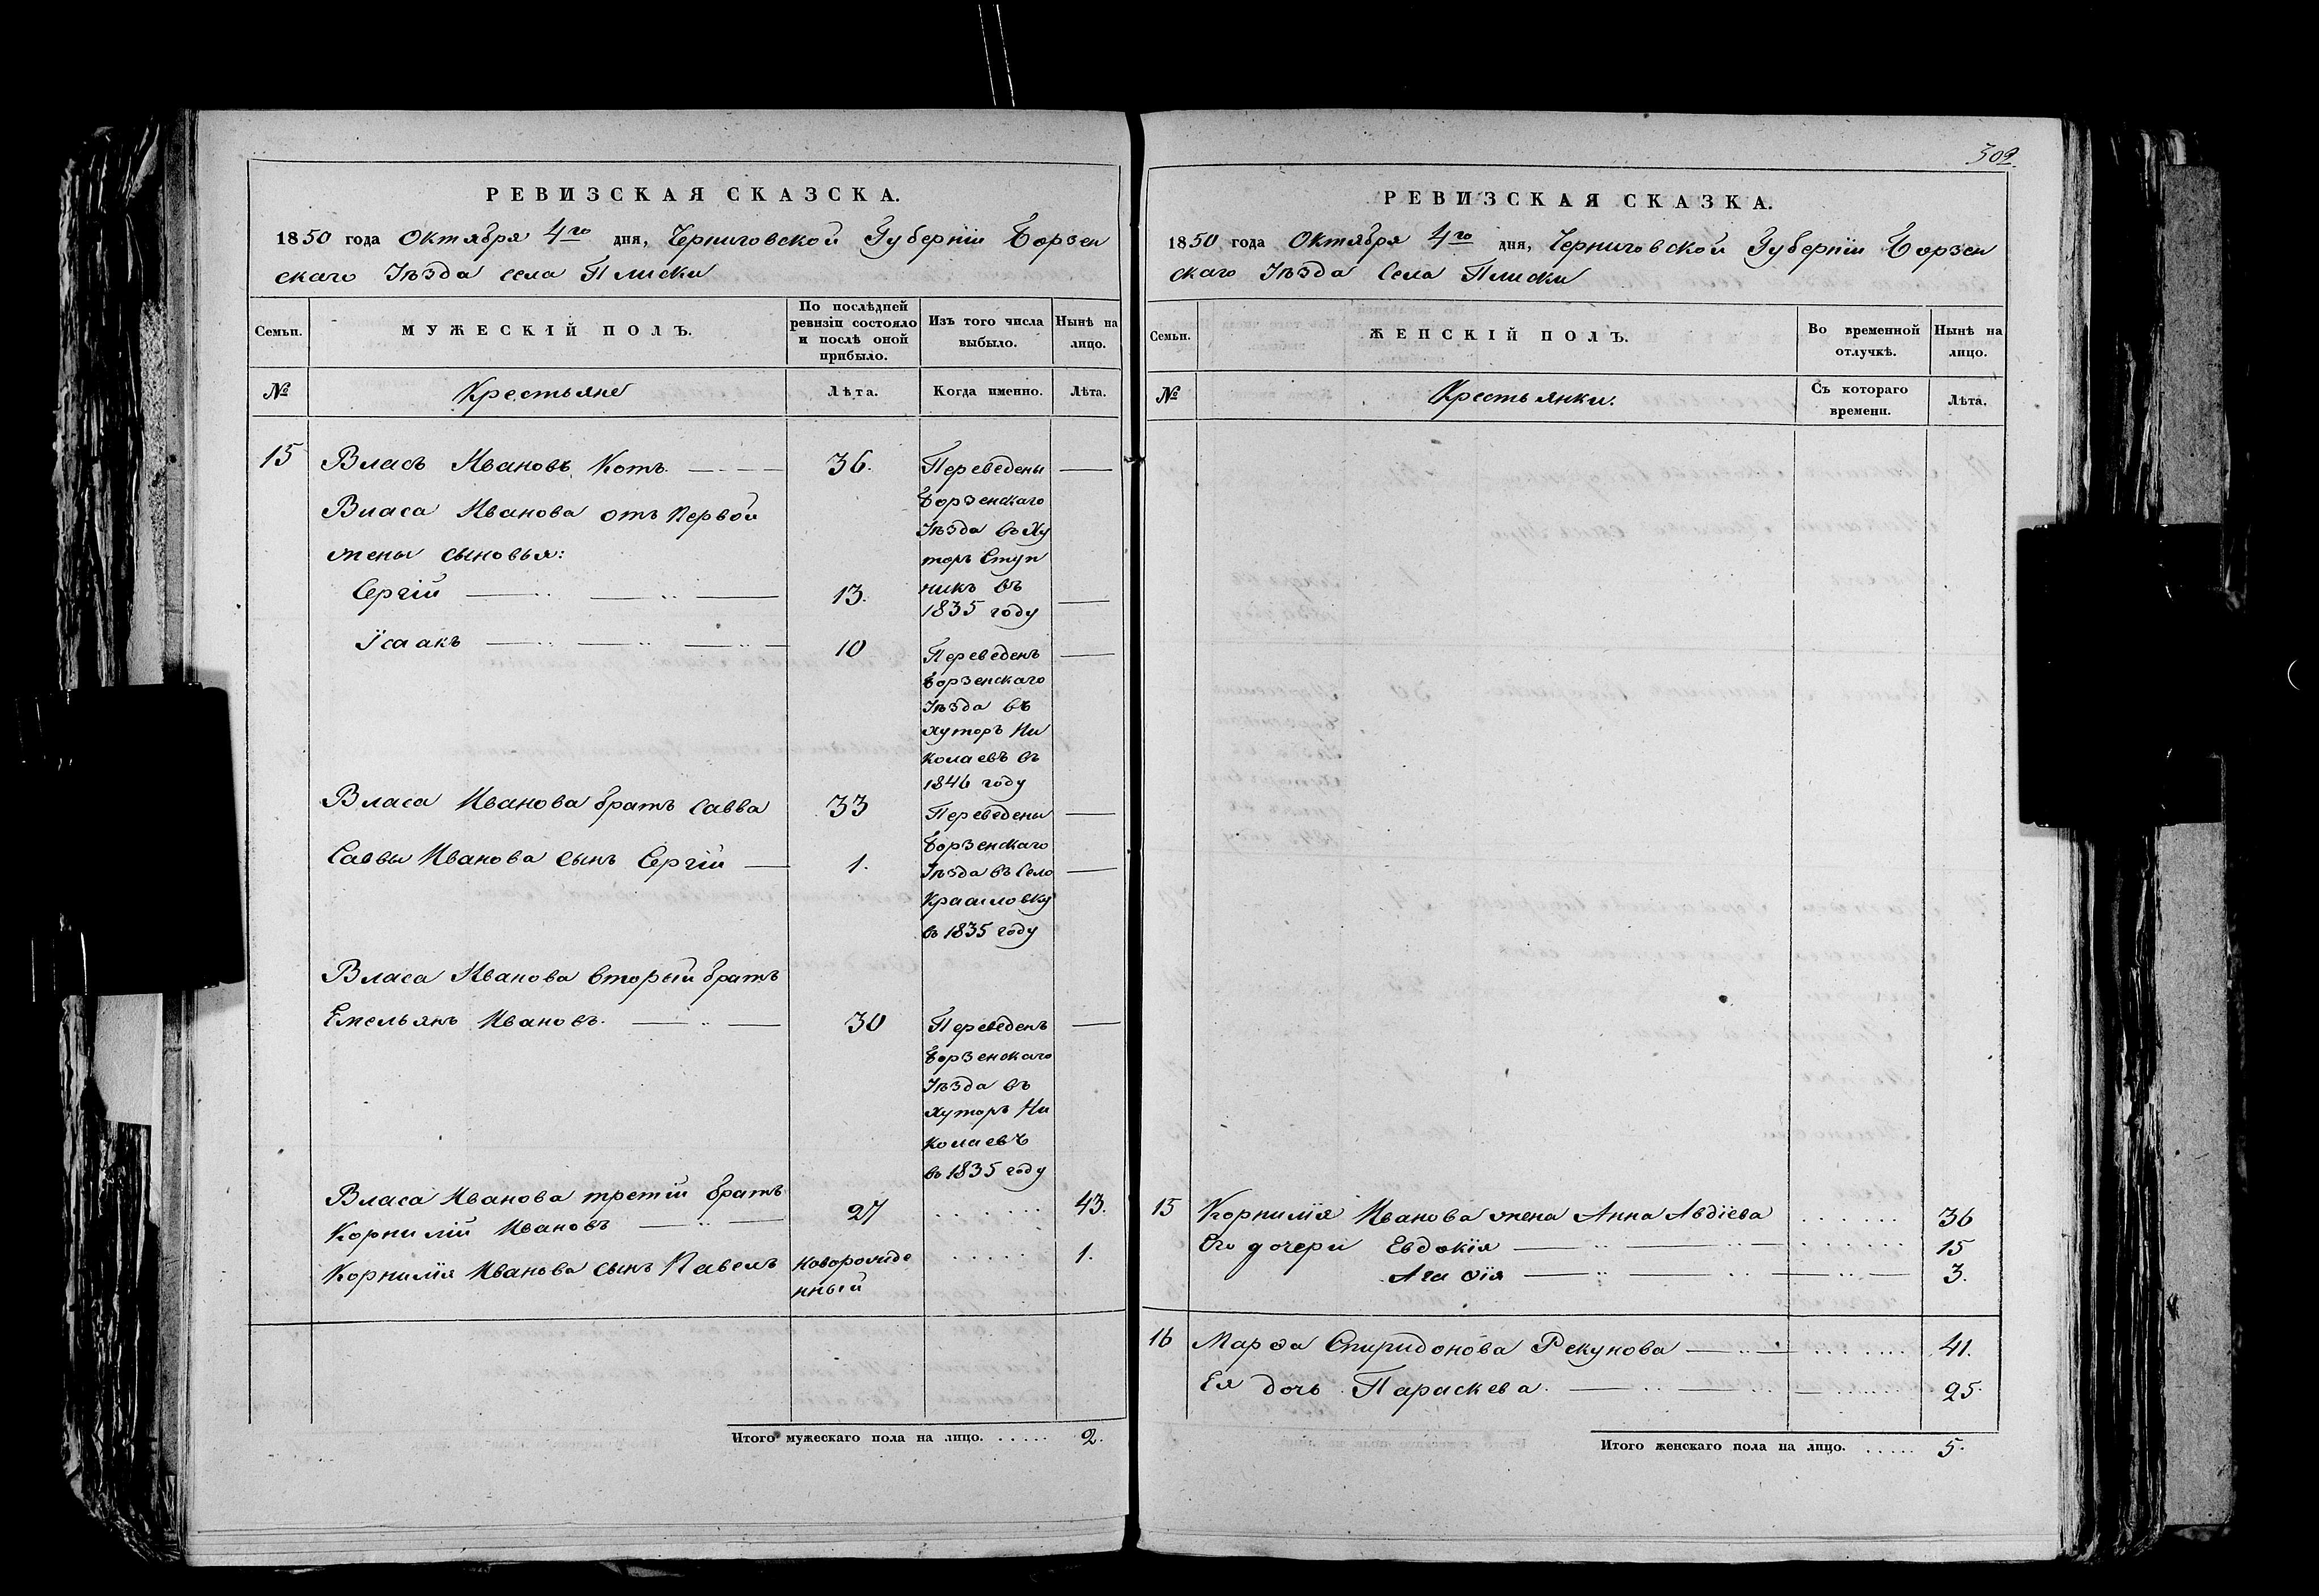 РЕВИЗСКАЯ СКАЗСКА.
1850 года Октября 4го дня, Черниговской Губерніи Борзен
скаго Уѣзда села Плиски
Семьи.
МУЖЕСКІЙ ПОЛЪ.
По послѣдней
ревизіи состояло
и послѣ оной
прибыло.
Изъ того числа
выбыло.
Нынѣ на
лицо.
№
Крестьяне
Лѣта.
Когда именно.
Лѣта.
15 Власъ Ивановъ Котъ. 36. Переведены
Борзенскаго
Власа Иванова отъ первой
Уѣзда въ Ху
жены сыновья:
торъ Ступ
Сергій 13. никъ въ
1835 году
Ісаакъ 10 Переведенъ
Борзенскаго
Уѣзда въ
хуторъ Ни
колаевъ въ
1846 году
Власа Иванова братъ Савва 33 Переведены
Борзенскаго
Саввы Иванова сынъ Сергій 1. Уѣзда въ Село
въ 1835 году
Власа Иванова вторый братъ
Емельянъ Ивановъ. 30 Переведенъ
Борзенскаго
Уѣзда въ
хуторъ Ни
колаевъ
въ 1835 году
Власа Иванова третій братъ
Корнилій Ивановъ 27 43.
Корнилія Иванова сынъ Павелъ новорожде 1.
нный
Итого мужескаго пола на лицо. 2.
302.
РЕВИЗСКАЯ СКАЗКА.
1850 года Октября 4го дня, Черниговской Губерніи Борзен
скаго Уѣзда Села Плиски
Семьи.
ЖЕНСКІЙ ПОЛЪ.
Во временной
отлучкѣ.
Нынѣ на
лицо.
№
Крестьянки.
Съ котораго
времени.
Лѣта.
15 Корнилія Иванова жена Анна Авдіева 36
Его дочери Евдокія 15
Агафія 3.
16 Марѳа Спиридонова Рекунова 41.
Ея дочь Параскева. 25.
Итого женскаго пола на лицо. 5.